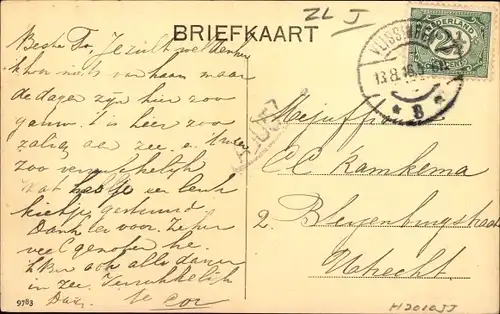 BRIEFKAART
ZL J
NEDERLAND
2½
CENT
VLISSINGEN
13.8.16
8
Beste To, Je zult wel denken
ik hoor niets van haar maar
de dagen zijn hier zoo
gauw. 't is hier zoo
zalig aan zee. o, 
zoo verrukkelijk
Wat heb je een leuk
kiekje gestuurd
Dank ervoor. Ze hier
veel genoten he.
ook alle dagen
in zee. Verrukkelijk
Dag. Je Cor
Mejuffr
CC Kamkema
2. Bleijenburgstraat
Utrecht
9763
H2010JJ